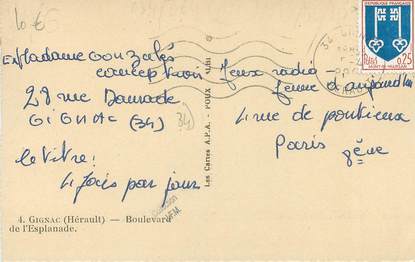 10 €
Madame Gonzalés
conception
28 rue Daurade
GIGNAC (34)
34
le titre!
4 fois par jour
4. GIGNAC (Hérault) — Boulevard
de l'Esplanade.
Les Cartes A.P.A. - POUX - Albi
REPUBLIQUE FRANÇAISE
Postes 0,25
MONT-DE-MARSAN
Jeux radio
femme d'aujourd'hui
4 rue de ponthieu
Paris
8ème